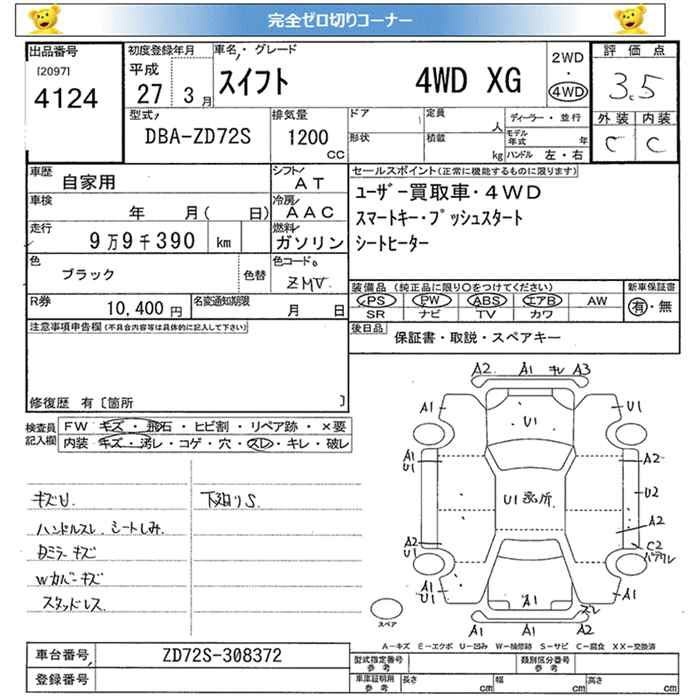 完全ゼロ切りコーナー
出品番号 初度登録年月 車名・グレード 2WD 評価点
[2097] 平成 スイフト 4WD XG ・ 3.5
4124 27 3月 4WD
型式 排気量 ドア 定員 人 ディーラー・並行 外装 内装
DBA-ZD72S 1200 CC 形状 積載 kg モデル年式 年 C C
ハンドル 左・右
車歴 自家用 シフト AT セールスポイント(正常に機能するものに限ります)
車検 年 月( 日) 冷房 AAC ユーザー買取車・4WD
走行 9万9千390 km 燃料 ガソリン スマートキー・プッシュスタート
シートヒーター
色 ブラック 色替 色コード ZMV
装備品 (純正品に限り○をつけてください) 新車保証書
PS PW ABS エアB AW 有・無
SR ナビ TV カワ
R券 10,400円 名変通知期限 月 日
注意事項申告欄(不具合内容等は具体的に記入して下さい) 後日品 保証書・取説・スペアキー
修復歴 有〔箇所 〕
検査員記入欄 FW キズ・飛石・ヒビ割・リペア跡・×要
内装 キズ・汚レ・コゲ・穴・スレ・キレ・破レ
キズU. 下廻りS.
ハンドルスレ シートしみ.
Rミラーキズ
Wカバーキズ
スタッドレス
A2 A1 キレ A3
A1 U1 U1
A1 U1 A2
U1
U2
A2 A2
U1 C2
A1 U1 A1 A1 U1
A1 U1 スレ
スペア
A―キズ E―エクボ U―凹み W―補修跡 S―サビ C―腐食 XX―交換済
車台番号 ZD72S-308372 型式指定番号 参考 類別区分番号 参考
登録番号 車庫証明用 参考 長さ cm 幅 cm 高さ cm